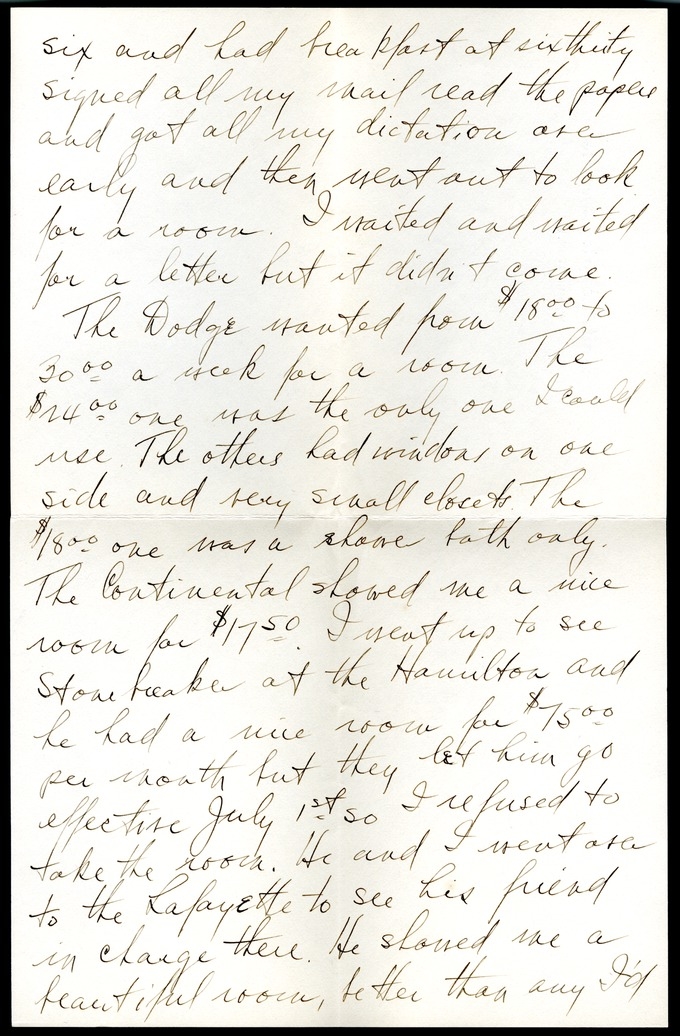 six and had breakfast at sixthirty
signed all my mail read the papers
and got all my dictation over
early and then went out to look
for a room. I waited and waited
for a letter but it didn't come.
The Dodge wanted from $18.00 to
30.00 a week for a room. The
$24.00 one was the only one I could
use. The others had windows on one
side and very small closets. The
$18.00 one was a shower bath only.
The Continental showed me a nice
room for $17.50. I went up to see
Stonebreaker at the Hamilton and
he had a nice room for $75.00
per month but they let him go
effective July 1st so I refused to
take the room. He and I went over
to the Lafayette to see his friend
in charge there. He showed me a
beautiful room, better than any I'd